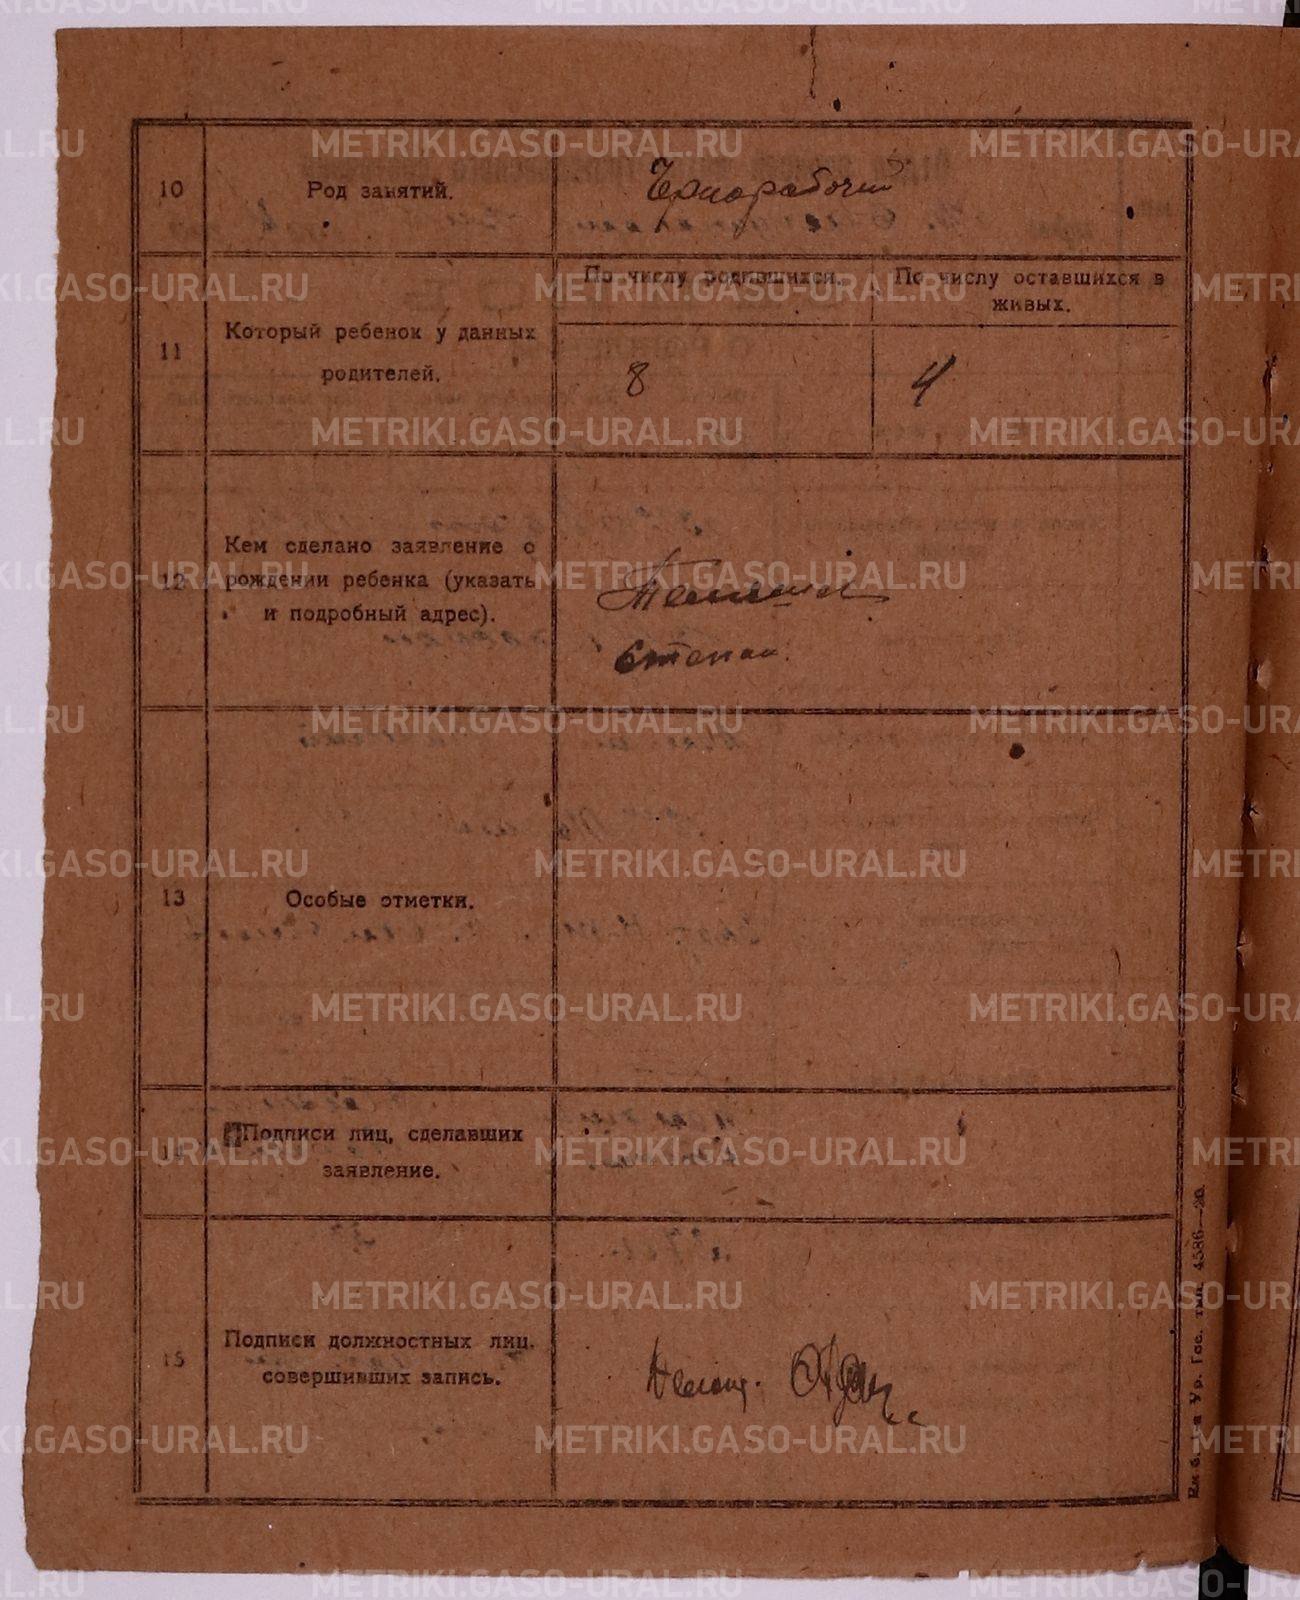 10
Род занятий.
Чернорабочий
11
Который ребенок у данных
родителей.
По числу родившихся.
По числу оставшихся в
живых.
8
4
12
Кем сделано заявление о
рождении ребенка (указать
и подробный адрес).
Степан.
13
Особые отметки.
14
Подписи лиц, сделавших
заявление.
15
Подписи должностных лиц,
совершивших запись.
Делопр.
Ур. Гос. тип. 4586—20.
METRIKI.GASO-URAL.RU